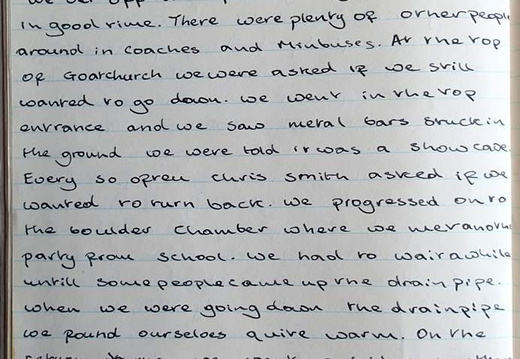 in good time. There were plenty of other people
around in coaches and Minbuses. At the top
of Goatchurch we were asked if we still
wanted to go down. we went in the top
entrance and we saw metal bars stuck in
the ground we were told it was a show cave.
Every so often chris smith asked if we
wanted to turn back. we progressed onto
the boulder chamber where we met another
party from school. we had to wait awhile
untill some people came up the drain pipe.
when we were going down the drainpipe
we found ourseloes quite warm. On the